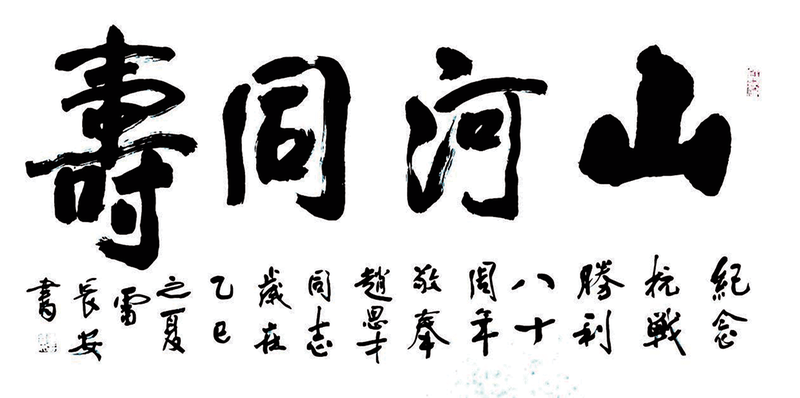 山河同壽
紀念
抗戰
勝利
八十
周年
敬奉
趙恩才
同志
歲在
乙巳
之夏
雷
長安
書